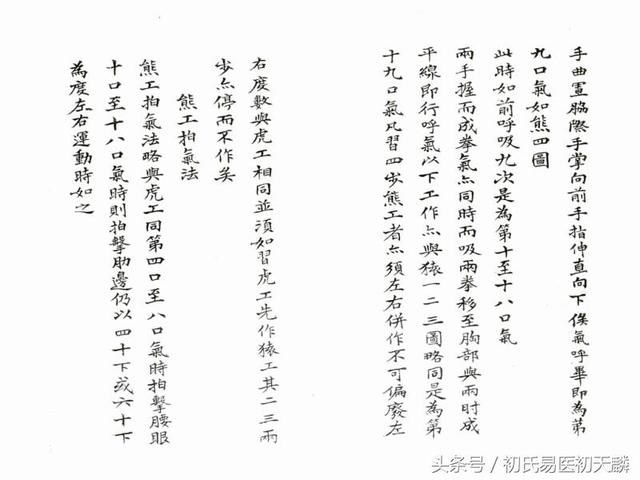 手曲置脇際手掌向前手指伸直向下俟氣呼畢即為第
九口氣如熊四圖
此時如前呼吸九次是為第十至十八口氣
兩手握而成拳氣亦同時而吸兩拳移至胸部與兩肘成
平線即行呼氣以下工作亦與猿一二三圖略同是為第
十九口氣凡習四步熊工者亦須左右併作不可偏廢左
右度數與虎工相同並須如習虎工先作猿工其二三兩
步亦停而不作矣
熊工拍氣法
熊工拍氣法略與虎工同第四口至八口氣時拍擊腰眼
十口至十八口氣時則拍擊肋邊仍以四十下或六十下
為度左右運動時如之
头条号/初氏易医初天麟